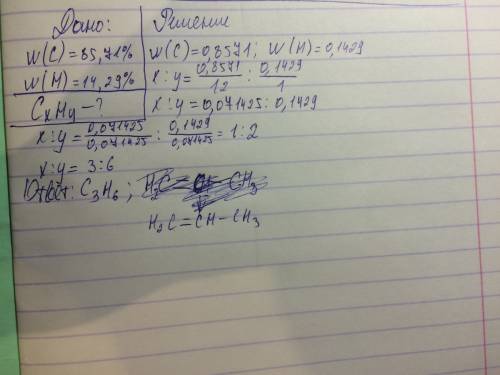 Дано:
w(C)=85,71%
w(H)=14,29%
CxHy-?
Решение
w(C)=0,8571; w(H)=0,1429
x:y=0,8571/12 : 0,1429/1
x:y=0,071425:0,1429
x:y=0,071425/0,071425 : 0,1429/0,071425 = 1:2
x:y=3:6
Ответ: C3H6;
H2C=CH-CH3